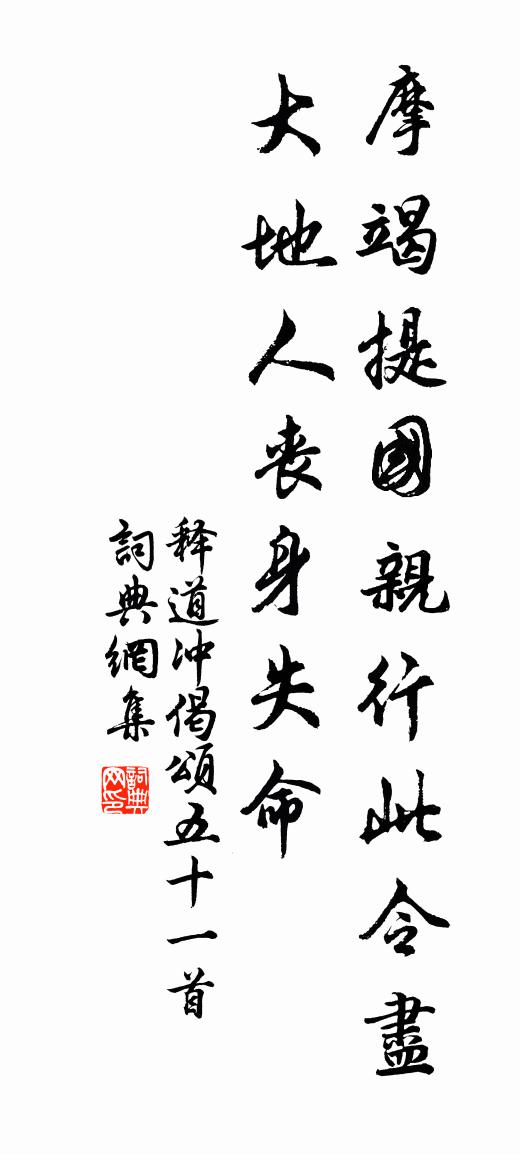 摩竭提國親行此令盡
大地人丧身失命
释道冲偈頌五十一首
詞典網集
詞典网印